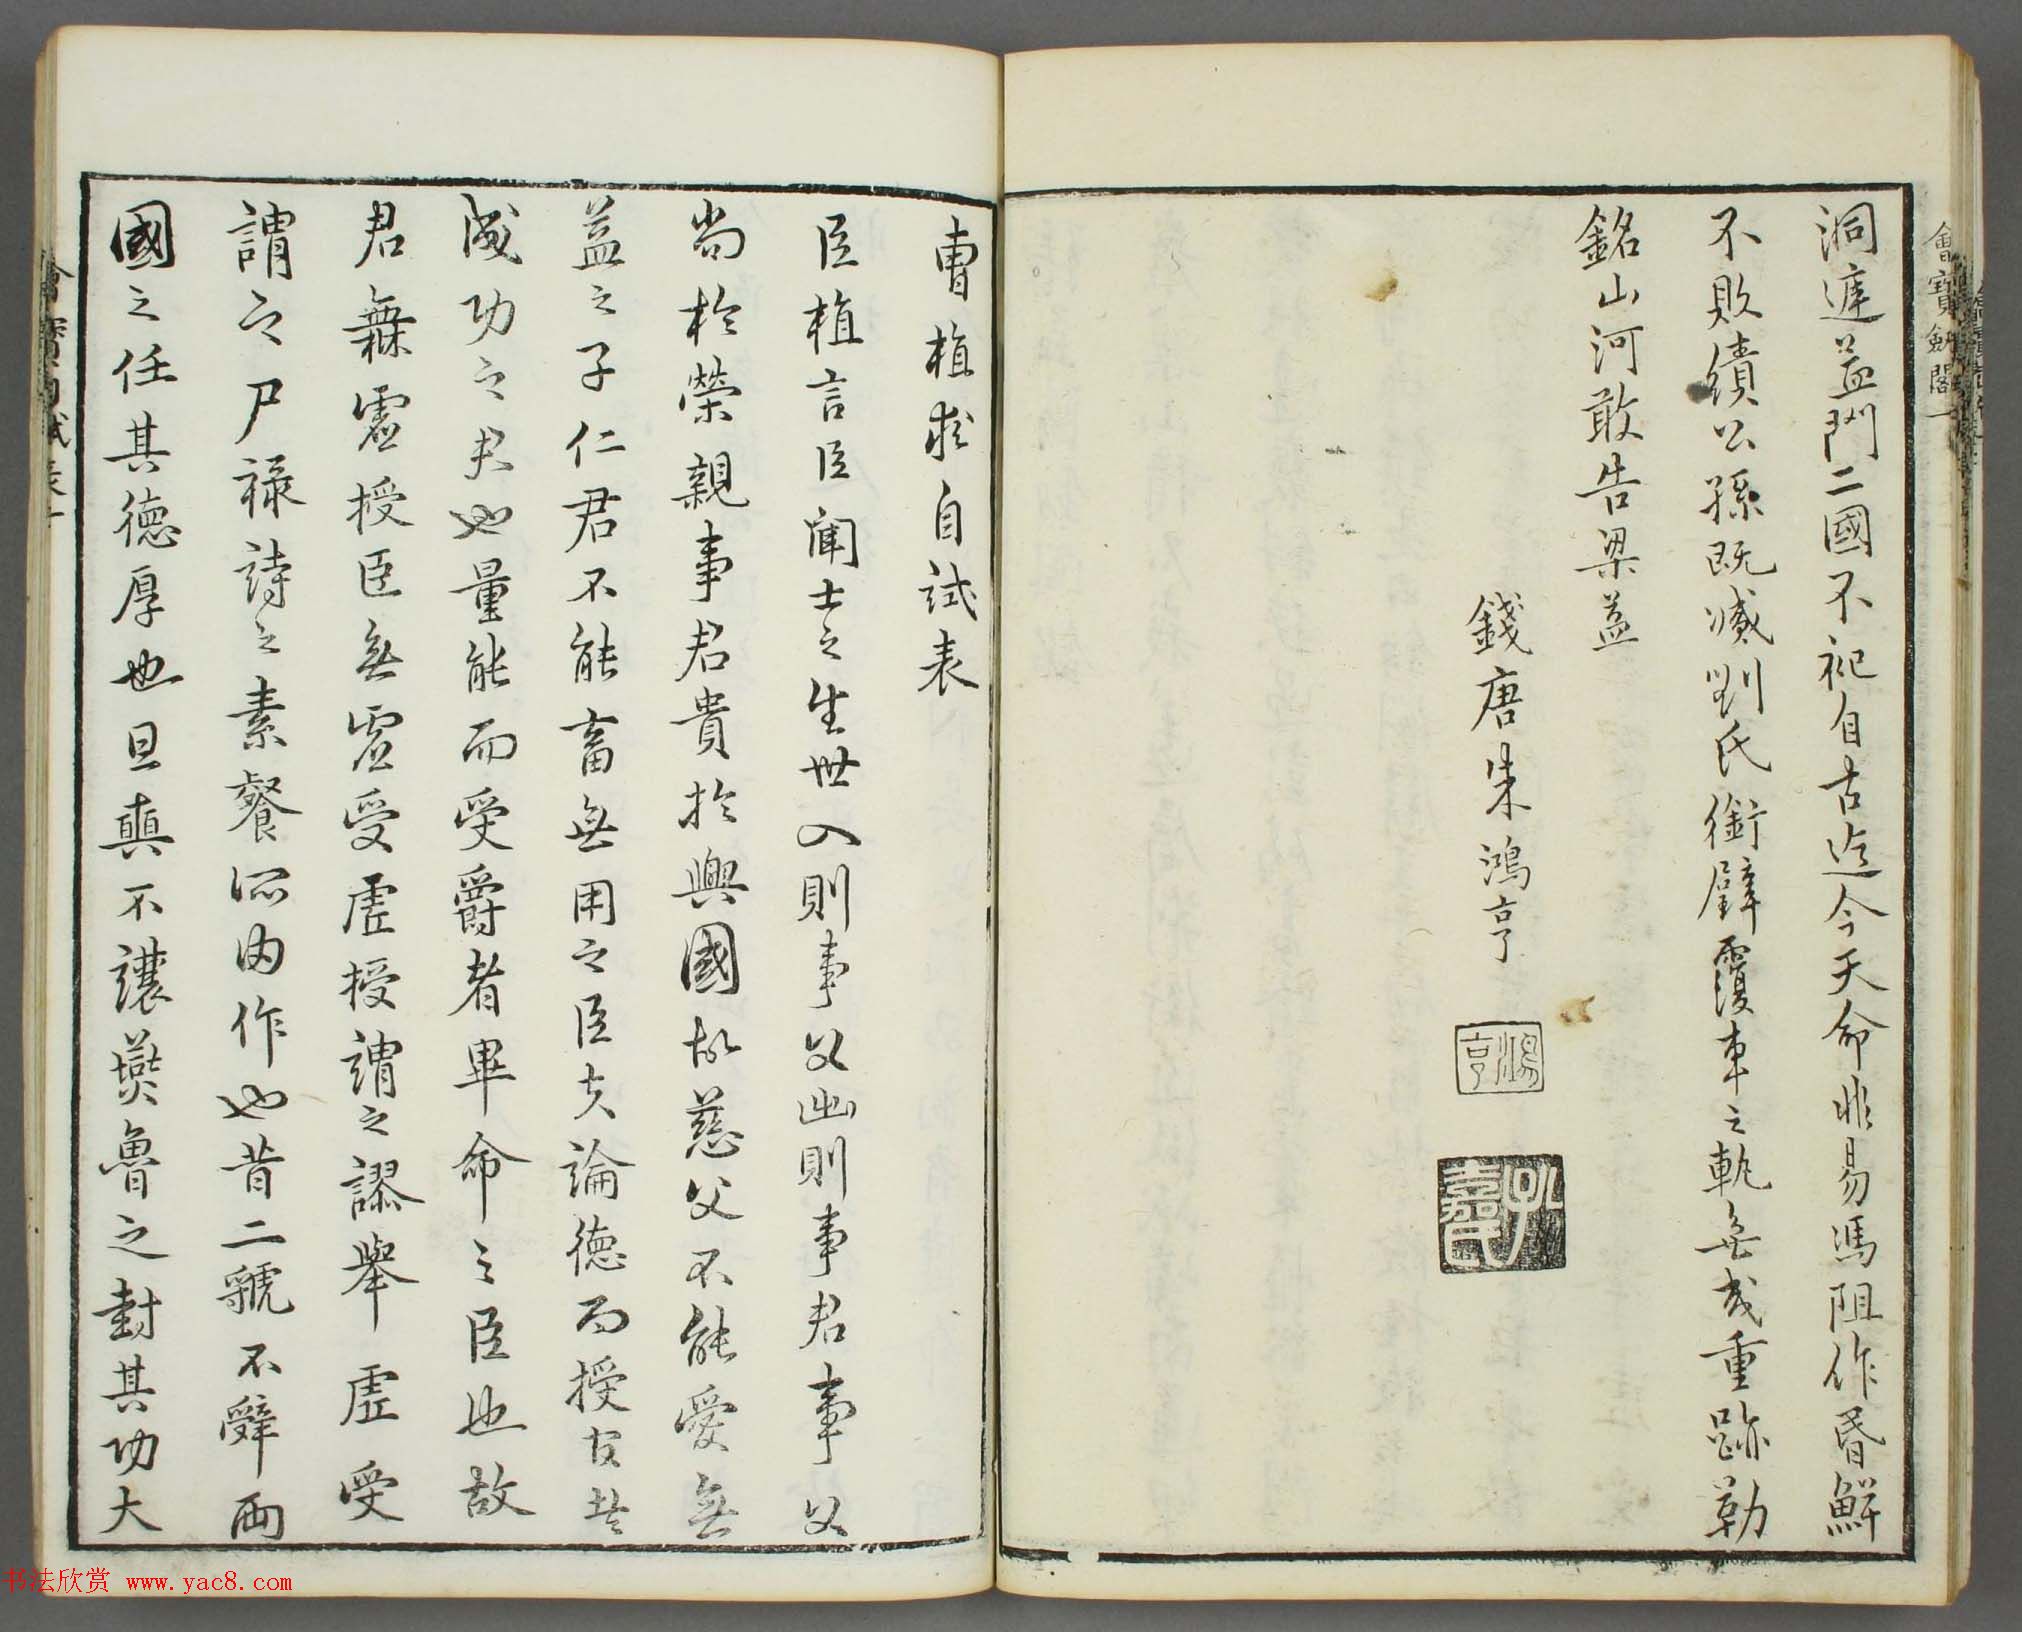 洞庭孟門二國不祀自古迄今天命非易馮阻作昏鮮
不敗績公孫既滅劉氏銜璧覆車之軌無或重跡勒
銘山河敢告梁益
錢唐朱鴻亨
鴻亨
會寶劍閣一
曹植求自試表
臣植言臣聞士之生世入則事父出則事君事父
尚於榮親事君貴於興國故慈父不能愛無
益之子仁君不能畜無用之臣夫論德而授官者
成功之君也量能而受爵者畢命之臣也故
君無虛授臣無虛受虛授謂之謬舉虛受
謂之尸祿詩之素餐所由作也昔二虢不辭兩
國之任其德厚也旦奭不讓燕魯之封其功大
书法欣赏 www.yac8.com